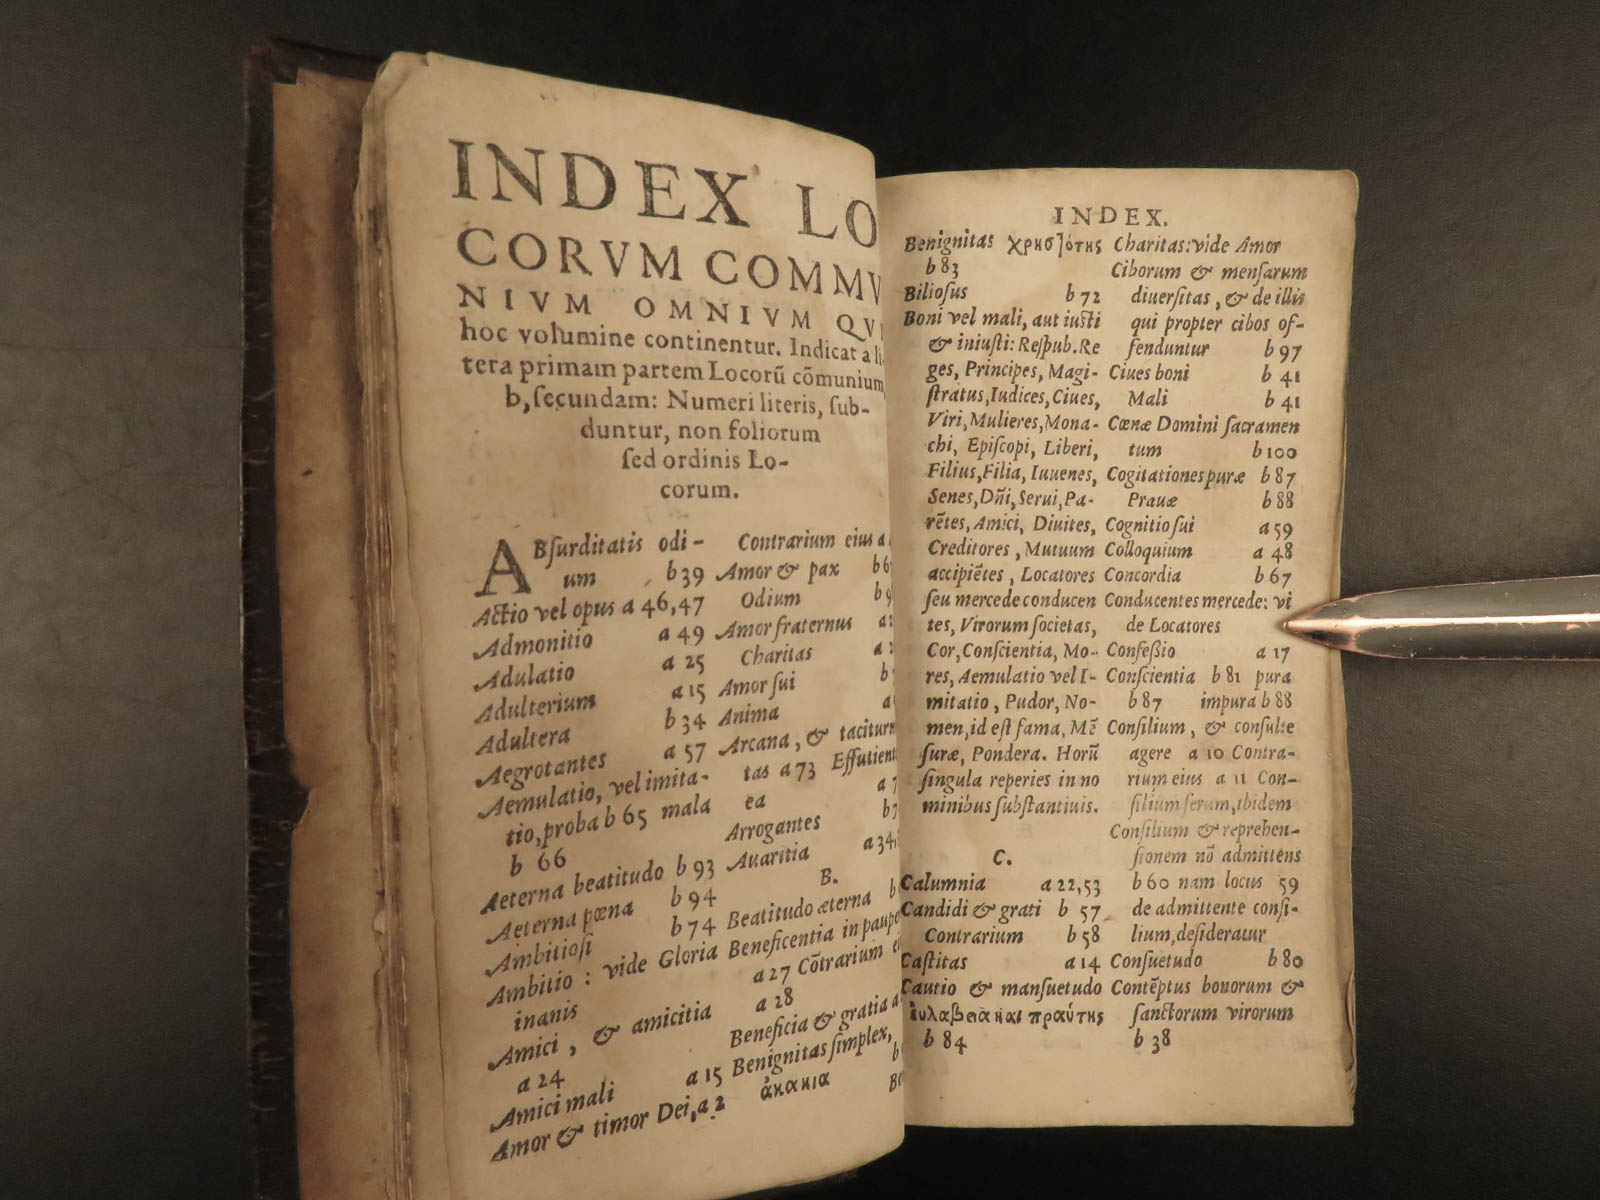 INDEX LO
CORVM COMMV
NIVM OMNIVM QV
hoc volumine continentur. Indicat a li
tera primam partem Locorū cōmunium,
b, ſecundam: Numeri literis, ſub-
duntur, non foliorum
ſed ordinis Lo-
corum.
ABſurditatis odi-
um b 39
Actio vel opus a 46, 47
Admonitio a 49
Adulatio a 25
Adulterium a 15
Adultera b 34
Aegrotantes a 57
Aemulatio, vel imita-
tio, proba b 65 mala
b 66
Aeterna beatitudo b 93
Aeterna pœna b 94
Ambitioſi b 74
Ambitio : vide Gloria
inanis
Amici, & amicitia
a 24
Amici mali a 15
Amor & timor Dei, a 2
Contrarium eius a
Amor & pax b 6
Odium b 9
Amor fraternus a
Charitas a
Amor ſui b
Anima a
Arcana, & taciturn
tas a 73 Effutient
ea a 7
Arrogantes b 7
Auaritia a 34
B.
Beatitudo æterna b
Beneficentia in paupe
a 27 Cōtrarium e
a 28
Beneficia & gratia a
Benignitas ſimplex,
ἀκακια b
Be
INDEX.
Benignitas χρησότης
b 83
Bilioſus b 72
Boni vel mali, aut iuſti
& iniuſti: Reſpub. Re
ges, Principes, Magi-
ſtratus, Iudices, Ciues,
Viri, Mulieres, Mona-
chi, Epiſcopi, Liberi,
Filius, Filia, Iuuenes,
Senes, Dñi, Serui, Pa-
rētes, Amici, Diuites,
Creditores, Mutuum
accipiētes, Locatores
ſeu mercede conducen
tes, Virorum ſocietas,
Cor, Conſcientia, Mo-
res, Aemulatio vel I-
mitatio, Pudor, No-
men, id eſt fama, Mē
ſuræ, Pondera. Horū
ſingula reperies in no
minibus ſubſtantiuis.
C.
Calumnia a 22, 53
Candidi & grati b 57
Contrarium b 58
Caſtitas a 14
Cautio & manſuetudo
ἐυλαβεια και πραύτης
b 84
Charitas: vide Amor
Ciborum & menſarum
diuerſitas, & de illis
qui propter cibos of-
fenduntur b 97
Ciues boni b 41
Mali b 41
Cœnæ Domini ſacramen
tum b 100
Cogitationes puræ b 87
Prauæ b 88
Cognitio ſui a 59
Colloquium a 48
Concordia b 67
Conducentes mercede: vi
de Locatores
Confeſſio a 17
Conſcientia b 81 pura
b 87 impura b 88
Conſilium, & conſulte
agere a 10 Contra-
rium eius a 11 Con-
ſilium ſerum, ibidem
Conſilium & reprehen-
ſionem nō admittens
b 60 nam locus 59
de admittente conſi-
lium, deſideratur
Conſuetudo b 80
Contēptus bonorum &
ſanctorum virorum
b 38